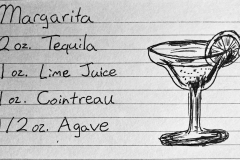 Margarita
2 oz. Tequila
1 oz. Lime Juice
1 oz. Cointreau
1/2 oz. Agave